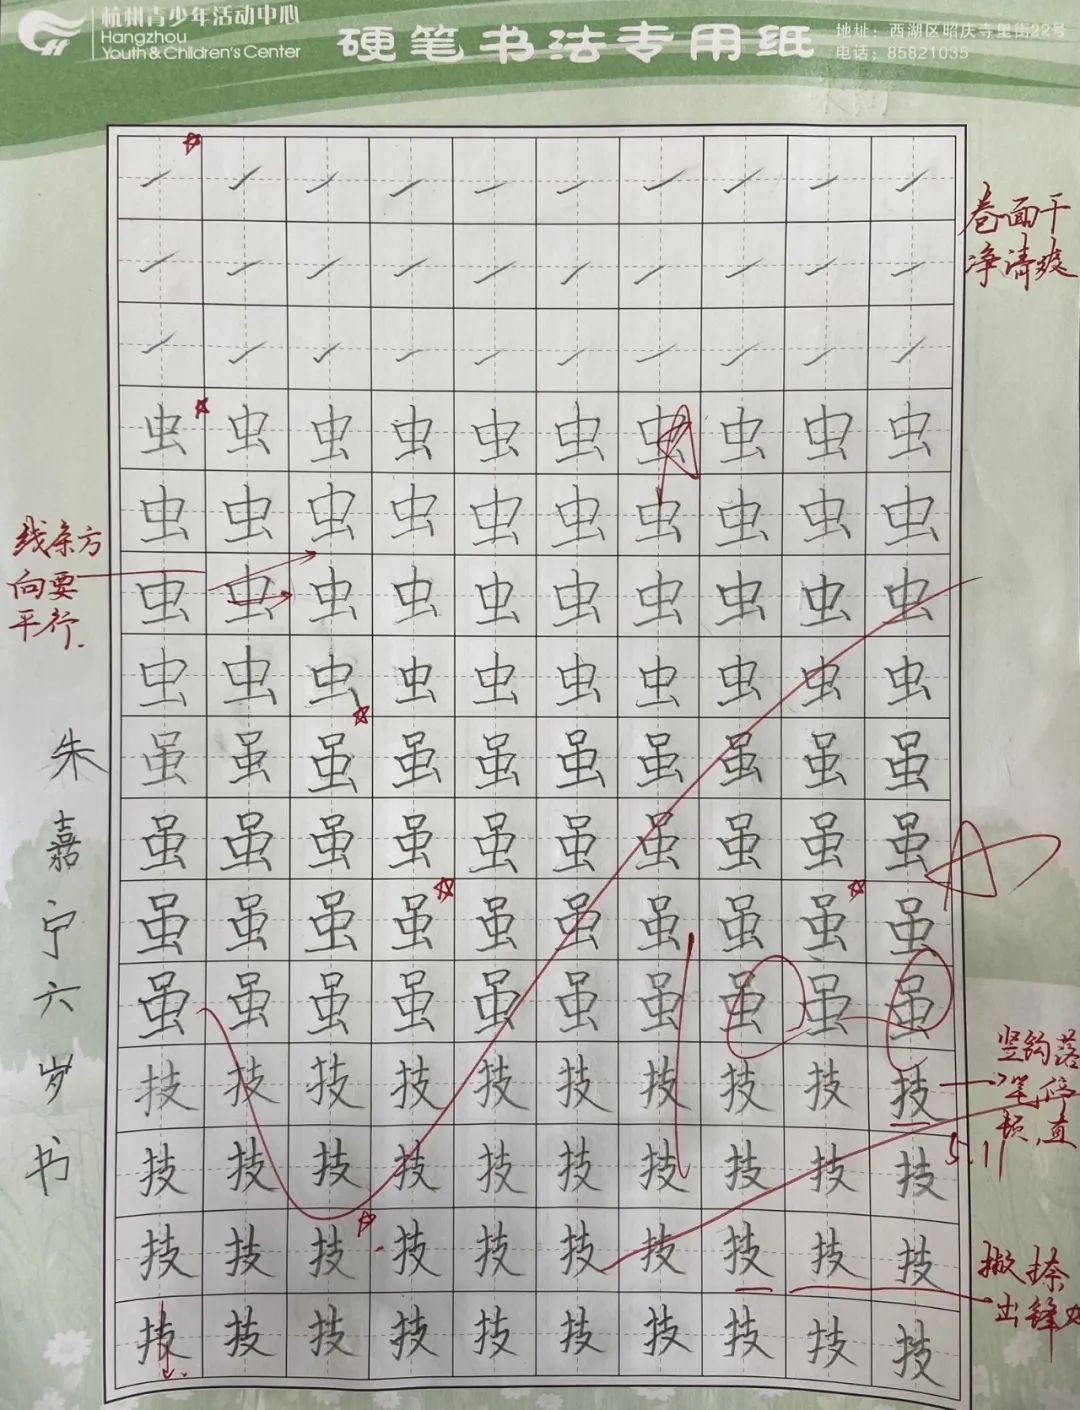 杭州青少年活动中心
Hangzhou
Youth & Children's Center
硬笔书法专用纸
地址：西湖区昭庆寺里街22号
电话：85821035
卷面干
净清爽
虫虫虫虫虫虫虫虫虫虫
虫虫虫虫虫虫虫虫虫虫
线条方
向要
平行.
虫虫虫虫虫虫虫虫虫虫
虫虫虫虫虫虫虫虫虫虫
虽虽虽虽虽虽虽虽虽虽
虽虽虽虽虽虽虽虽虽虽
虽虽虽虽虽虽虽虽虽虽
虽虽虽虽虽虽虽虽虽虽
技技技技技技技技技技
技技技技技技技技技技
技技技技技技技技技技
技技技技技技技技技技
朱嘉宁六岁书
竖钩落
笔,停
顿,直
5.11
撇捺
出锋